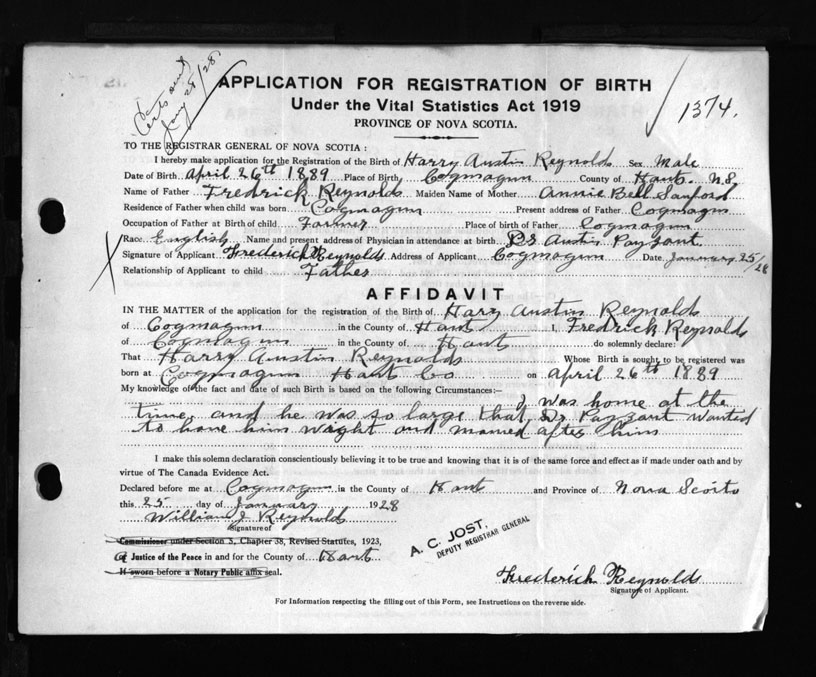 Certs sent
Jany 28/28
APPLICATION FOR REGISTRATION OF BIRTH
Under the Vital Statistics Act 1919
PROVINCE OF NOVA SCOTIA.
1374.
TO THE REGISTRAR GENERAL OF NOVA SCOTIA :
I hereby make application for the Registration of the Birth of Harry Austin Reynolds Sex Male
Date of Birth April 26th 1889 Place of Birth Cogmagun County of Hants N.S
Name of Father Fredrick Reynolds Maiden Name of Mother Annie Bell Sanford
Residence of Father when child was born Cogmagun Present address of Father Cogmagun
Occupation of Father at Birth of child Farmer Place of birth of Father Cogmagun
Race English Name and present address of Physician in attendance at birth Dr Austin Payzant
Signature of Applicant Frederick Reynolds Address of Applicant Cogmagun Date January 25/28
Relationship of Applicant to child Father
AFFIDAVIT
IN THE MATTER of the application for the registration of the Birth of Hary Austin Reynolds
of Cogmagun in the County of Hant I, Fredrick Reynolds
of Cogmagun in the County of Hants do solemnly declare:
That Harry Austin Reynolds Whose Birth is sought to be registered was
born at Cogmagun Hants Co on April 26th 1889
My knowledge of the fact and date of such Birth is based on the following Circumstances:—
I was home at the
time and he was so large that Dr Payzant wanted
to have him waght and named after him
I make this solemn declaration conscientiously believing it to be true and knowing that it is of the same force and effect as if made under oath and by
virtue of The Canada Evidence Act.
Declared before me at Cogmagun in the County of Hant and Province of Nova Scoits
this 25 day of January 1928
William J Reynolds
Signature of
Commissioner under Section 3, Chapter 38, Revised Statutes, 1923,
of Justice of the Peace in and for the County of Hant
If sworn before a Notary Public affix seal.
A. C. JOST,
DEPUTY REGISTRAR GENERAL
Frederick Reynolds
Signature of Applicant.
For Information respecting the filling out of this Form, see Instructions on the reverse side.